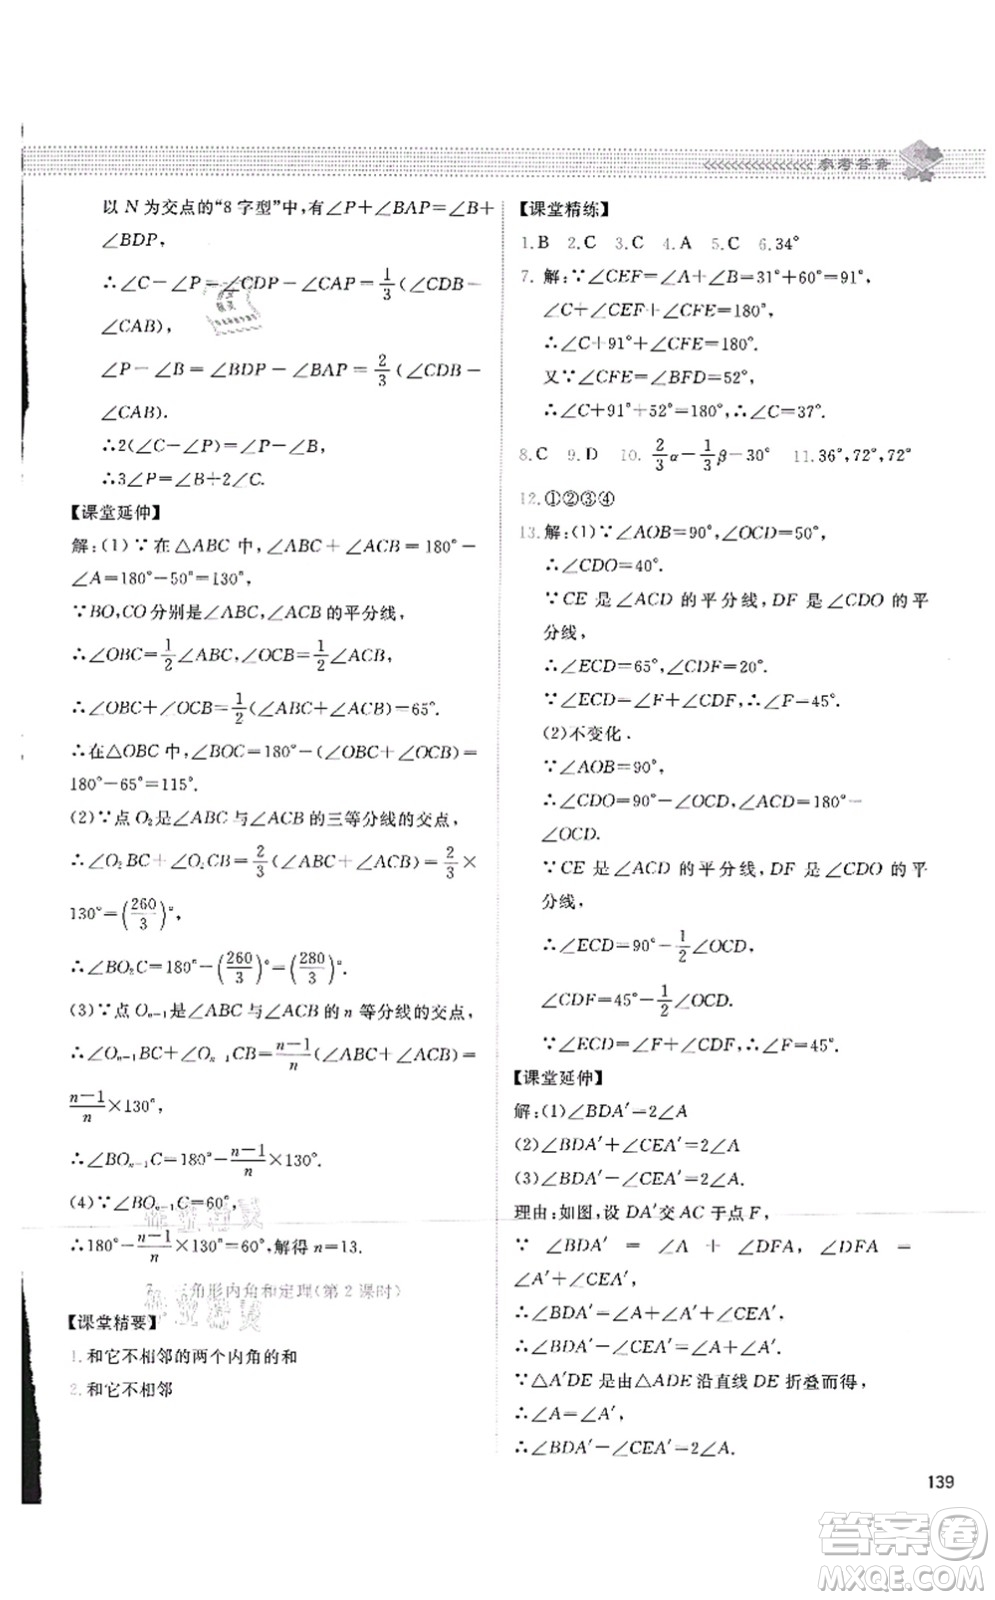 参考答案
以 N 为交点的“8 字型”中,有∠P+∠BAP=∠B+
∠BDP,
∴∠C-∠P=∠CDP-∠CAP=1/3(∠CDB-
∠CAB),
∠P-∠B=∠BDP-∠BAP=2/3(∠CDB-
∠CAB).
∴2(∠C-∠P)=∠P-∠B,
∴3∠P=∠B+2∠C.
【课堂延伸】
解:(1)∵在△ABC 中,∠ABC+∠ACB=180°-
∠A=180°-50°=130°,
∵BO,CO 分别是∠ABC,∠ACB 的平分线,
∴∠OBC=1/2∠ABC,∠OCB=1/2∠ACB,
∴∠OBC+∠OCB=1/2(∠ABC+∠ACB)=65°.
∴在△OBC 中,∠BOC=180°-(∠OBC+∠OCB)=
180°-65°=115°.
(2)∵点 O₂是∠ABC 与∠ACB 的三等分线的交点,
∴∠O₂BC+∠O₂CB=2/3(∠ABC+∠ACB)=2/3×
130°=(260/3)°,
∴∠BO₂C=180°-(260/3)°=(280/3)°.
(3)∵点 Oₙ₋₁是∠ABC 与∠ACB 的 n 等分线的交点,
∴∠Oₙ₋₁BC+∠Oₙ₋₁CB=(n-1)/n(∠ABC+∠ACB)=
(n-1)/n×130°,
∴∠BOₙ₋₁C=180°-(n-1)/n×130°.
(4)∵∠BOₙ₋₁C=60°,
∴180°-(n-1)/n×130°=60°,解得 n=13.
角形内角和定理(第 2 课时)
【课堂精要】
1.和它不相邻的两个内角的和
2.和它不相邻
【课堂精练】
1.B 2.C 3.C 4.A 5.C 6.34°
7.解:∵∠CEF=∠A+∠B=31°+60°=91°,
∠C+∠CEF+∠CFE=180°,
∴∠C+91°+∠CFE=180°.
又∵∠CFE=∠BFD=52°,
∴∠C+91°+52°=180°,∴∠C=37°.
8.C 9.D 10.2/3α-1/3β-30° 11.36°,72°,72°
12.①②③④
13.解:(1)∵∠AOB=90°,∠OCD=50°,
∴∠CDO=40°.
∵CE 是∠ACD 的平分线,DF 是∠CDO 的平
分线,
∴∠ECD=65°,∠CDF=20°.
∵∠ECD=∠F+∠CDF,∴∠F=45°.
(2)不变化.
∵∠AOB=90°,
∴∠CDO=90°-∠OCD,∠ACD=180°-
∠OCD.
∵CE 是∠ACD 的平分线,DF 是∠CDO 的平
分线,
∴∠ECD=90°-1/2∠OCD,
∠CDF=45°-1/2∠OCD.
∵∠ECD=∠F+∠CDF,∴∠F=45°.
【课堂延伸】
解:(1)∠BDA′=2∠A
(2)∠BDA′+∠CEA′=2∠A
(3)∠BDA′-∠CEA′=2∠A.
理由:如图,设 DA′交 AC 于点 F,
∵∠BDA′=∠A+∠DFA,∠DFA=
∠A′+∠CEA′,
∴∠BDA′=∠A+∠A′+∠CEA′,
∴∠BDA′-∠CEA′=∠A+∠A′.
∵△A′DE 是由△ADE 沿直线 DE 折叠而得,
∴∠A=∠A′,
∴∠BDA′-∠CEA′=2∠A.
139
答案卷
MXQE.COM